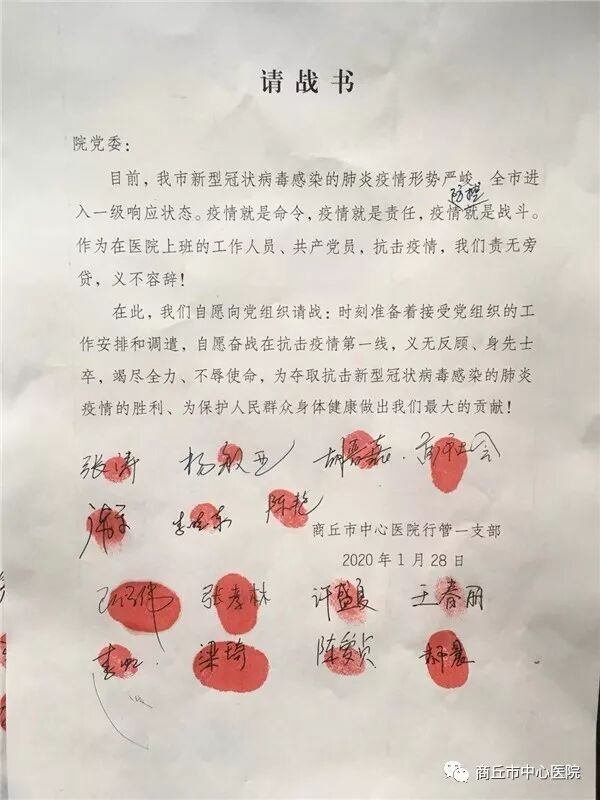 请战书
院党委：
目前，我市新型冠状病毒感染的肺炎疫情形势严峻，全市进
防控
入一级响应状态。疫情就是命令，疫情就是责任，疫情就是战斗。
作为在医院上班的工作人员、共产党员，抗击疫情，我们责无旁
贷，义不容辞！
在此，我们自愿向党组织请战：时刻准备着接受党组织的工
作安排和调遣，自愿奋战在抗击疫情第一线，义无反顾、身先士
卒，竭尽全力、不辱使命，为夺取抗击新型冠状病毒感染的肺炎
疫情的胜利、为保护人民群众身体健康做出我们最大的贡献！
张涛 杨
陈艳
商丘市中心医院行管一支部
2020年1月28日
张孝林 许盛夏 王春丽
梁琦 陈爱贞
商丘市中心医院